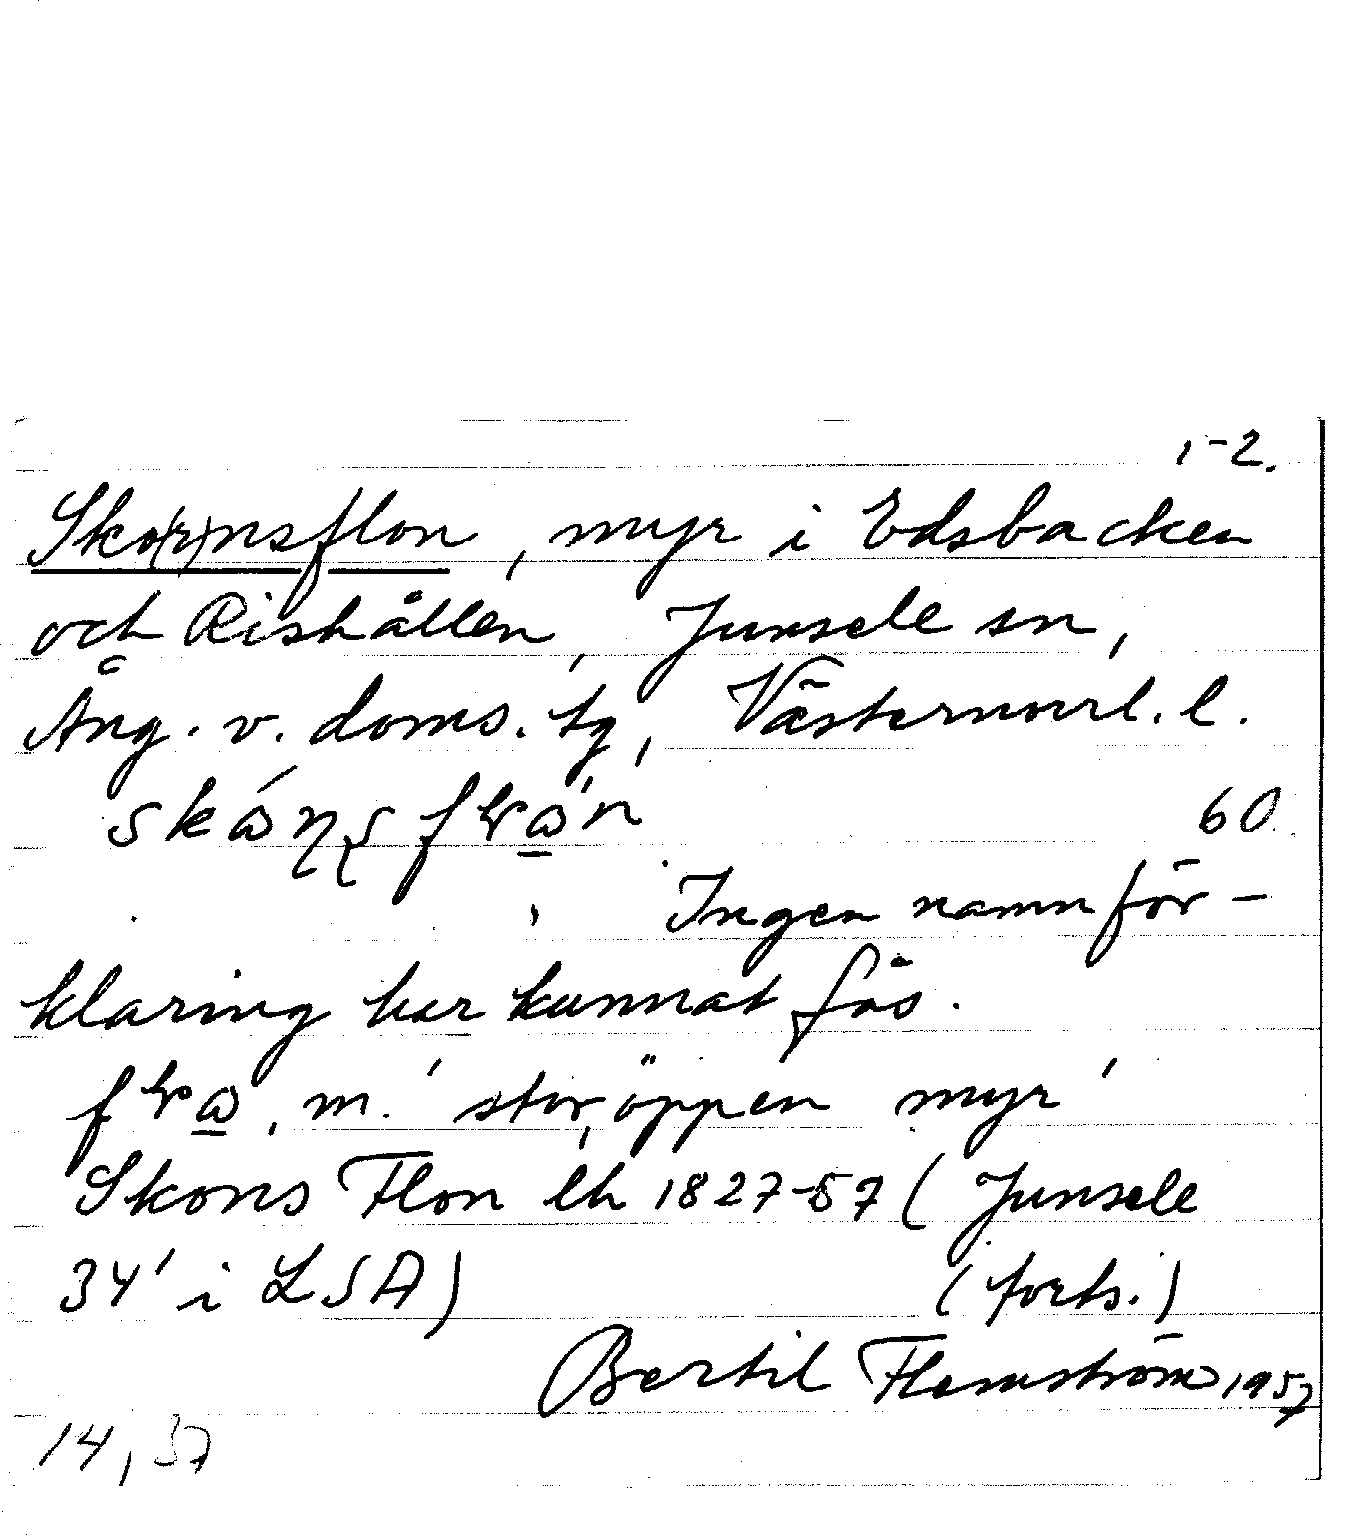 1-2.
Sko(r)nsflon, myr i Edsbacken
och Rishållen, Junsele sn,
Ång. v. doms. tg, Västernorrl. l.
60
Ingen namnför-
klaring har kunnat fås.
m. 'stor, öppen myr'
Skons Flon lh 1827-57 (Junsele
34' i LSA) (forts.)
Bertil Flemström 1957
14, 37